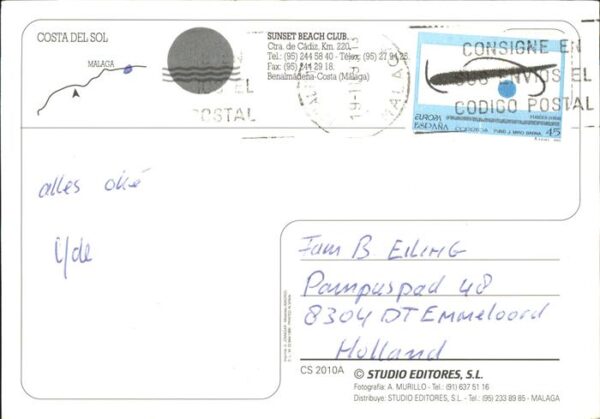 COSTA DEL SOL
MALAGA
SUNSET BEACH CLUB.
Ctra. de Cádiz, Km. 220
Tel.: (95) 244 58 40 - Télex: (95) 27 94 26
Fax: (95) 244 29 18.
Benalmádena-Costa (Málaga)
CONSIGNE EN
SUS ENVIOS EL
CODIGO POSTAL
OS EL
POSTAL
MALAG
EUROPA
ESPAÑA CORREOS FUND. J. MIRO BARNA. 45
alles oké
Yde
Fam B. EILING
Pampuspad 48
8304 DT Emmeloord
Holland
CS 2010A
© STUDIO EDITORES, S.L.
Fotografía: A. MURILLO - Tel.: (91) 637 51 16
Distribuye: STUDIO EDITORES, S.L. - Tel.: (95) 233 89 85 - MALAGA